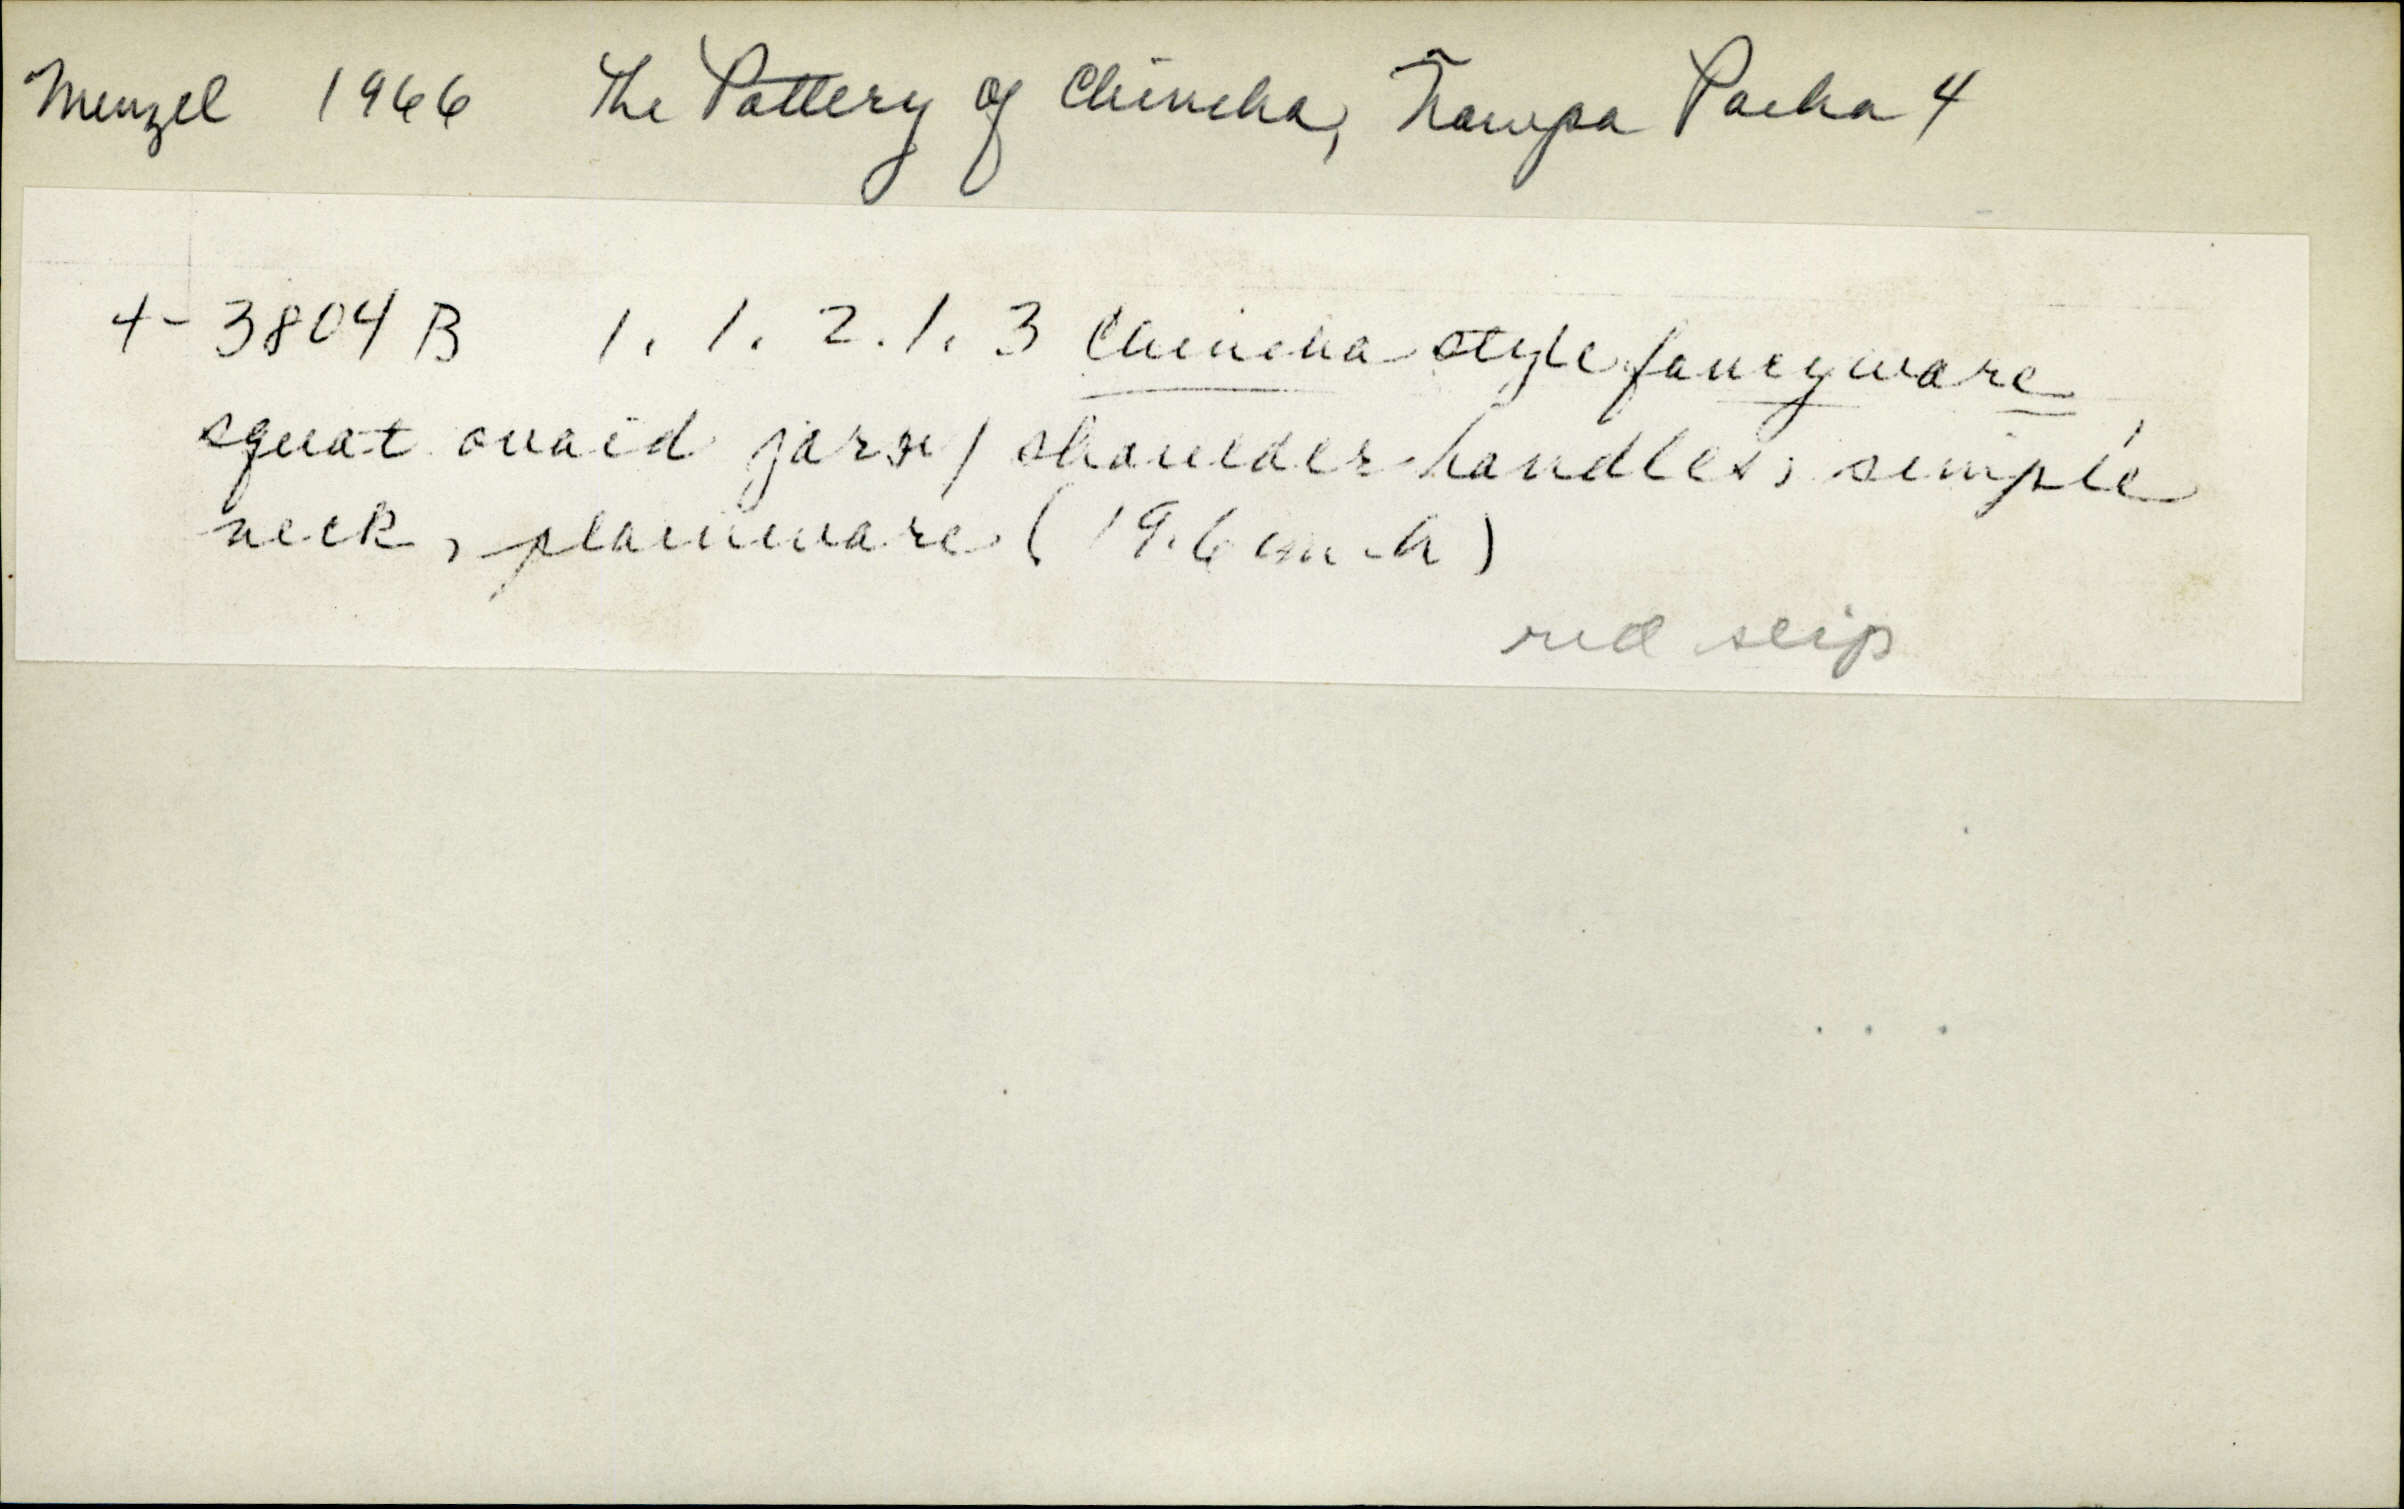 Menzel 1966 The Pottery of Chincha, Ñawpa Pacha 4
4-3804 B 1.1.2.1.3 Chincha style fancyware,
squat ovoid jar w/ shoulder handles, simple
neck, plainware (19.6 cm h)
red slip